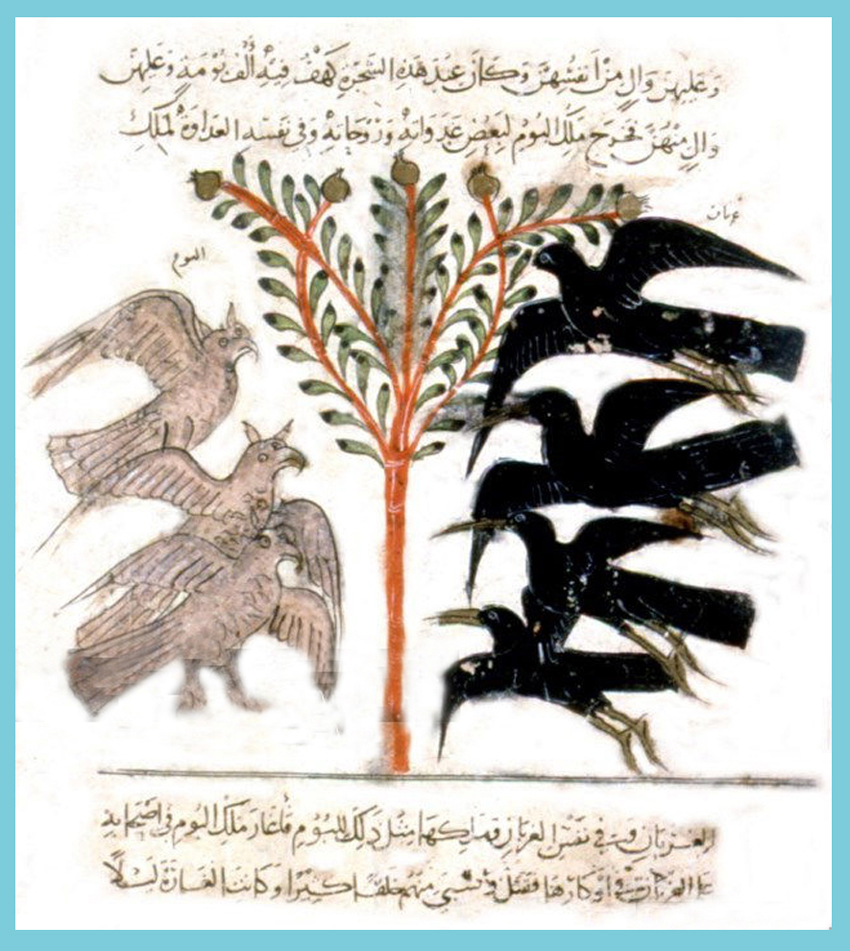 وعليهن وال من أنفسهن وكان عند هذه الشجرة كهف فيه ألف بومة وعليهن
وال منهن فخرج ملك البوم لبعض غدواته وروحاته وفي نفسه العداوة لملك
غربان
البوم
الغربان وفي نفس الغربان وملكها مثل ذلك للبوم فأغار ملك البوم في أصحابه
على الغربان في أوكارها فقتل وسبى منهم خلقا كثيرا وكانت الغارة ليلا